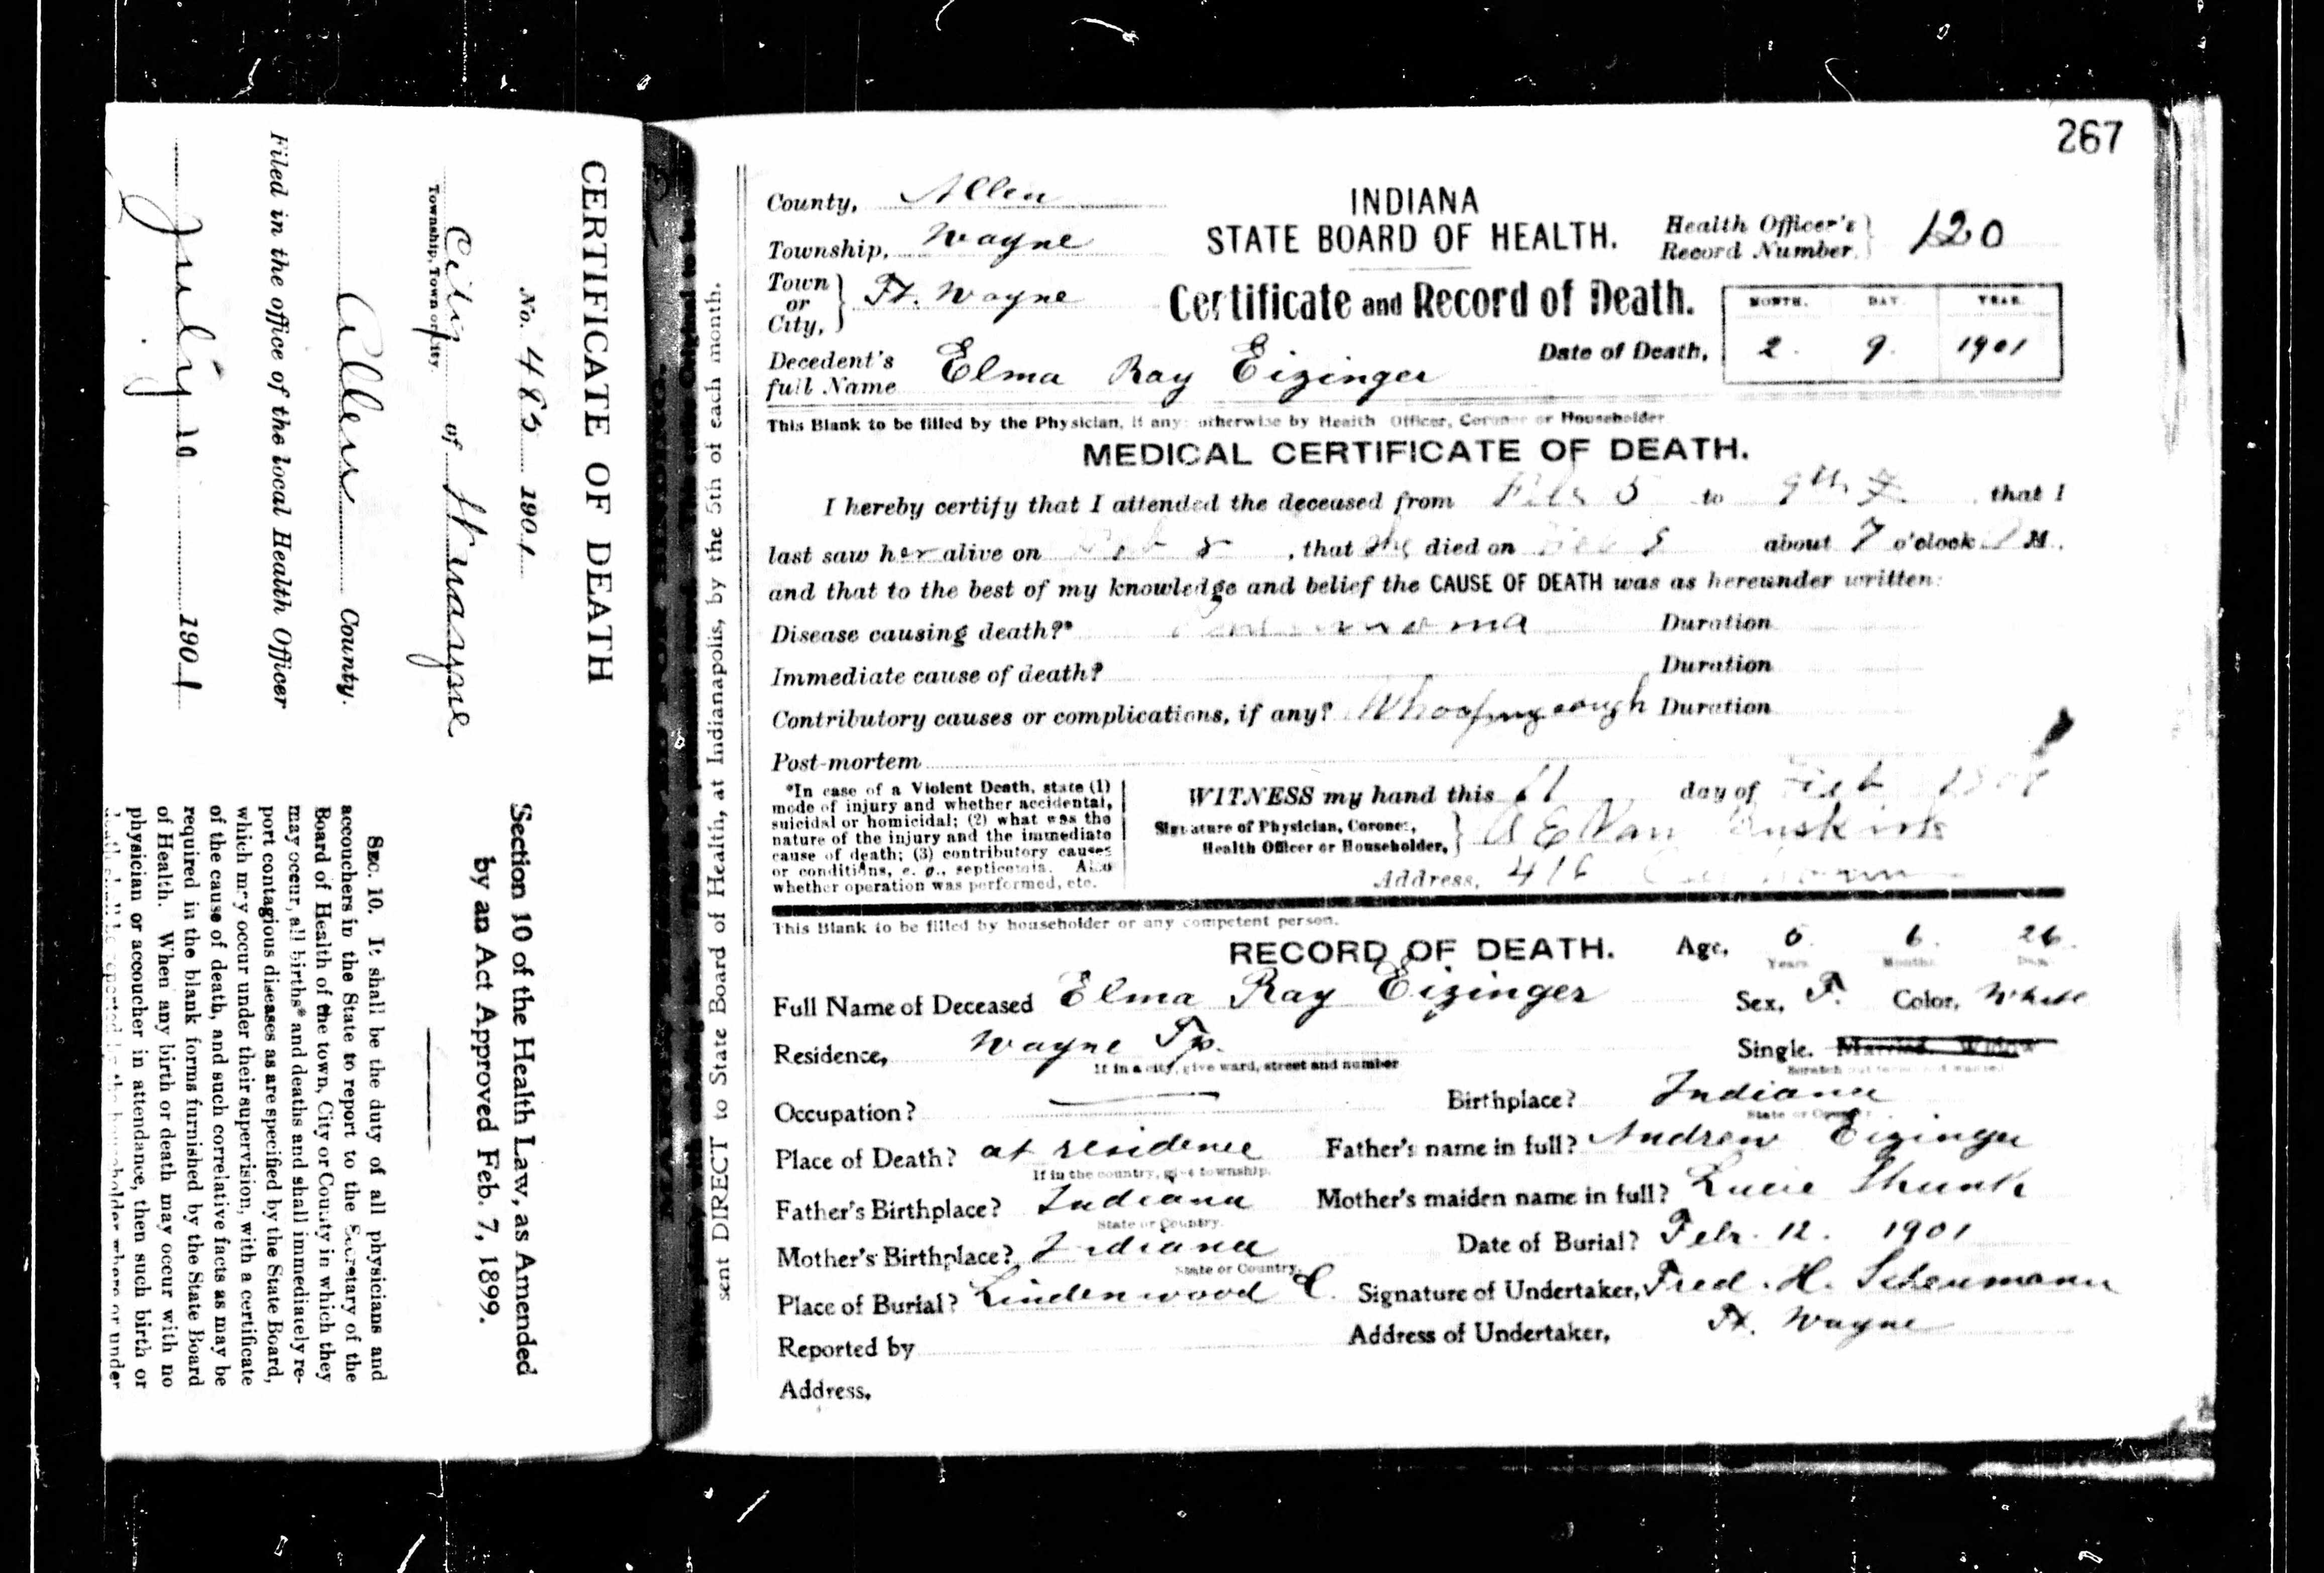 CERTIFICATE OF DEATH
No. 485 1901
City of Ft Wayne
Township, Town or City.
Allen County.
Filed in the office of the local Health Officer
July 10 1901
Section 10 of the Health Law, as Amended
by an Act Approved Feb. 7, 1899.
SEC. 10. It shall be the duty of all physicians and
accouchers in the State to report to the Secretary of the
Board of Health of the town, City or County in which they
may occur, all births* and deaths and shall immediately re-
port contagious diseases as are specified by the State Board,
which may occur under their supervision, with a certificate
of the cause of death, and such correlative facts as may be
required in the blank forms furnished by the State Board
of Health. When any birth or death may occur with no
physician or accoucher in attendance, then such birth or
death shall be reported by the householder where or under
sent DIRECT to State Board of Health, at Indianapolis, by the 5th of each month.
267
County, Allen
INDIANA
Township, Wayne
STATE BOARD OF HEALTH.
Health Officer's
Record Number. 120
Town
or
City, Ft. Wayne
Certificate and Record of Death.
MONTH. DAY. YEAR.
Date of Death, 2. 9. 1901
Decedent's
full Name Elma Ray Eizinger
This Blank to be filled by the Physician, if any: otherwise by Health Officer, Coroner or Householder
MEDICAL CERTIFICATE OF DEATH.
I hereby certify that I attended the deceased from Feb 5 to 9th that I
last saw her alive on Feb 8, that she died on about 7 o'clock M.
and that to the best of my knowledge and belief the CAUSE OF DEATH was as hereunder written:
Disease causing death?* Duration
Immediate cause of death? Duration
Contributory causes or complications, if any? Whooping cough Duration
Post-mortem
*In case of a Violent Death, state (1)
mode of injury and whether accidental,
suicidal or homicidal; (2) what was the
nature of the injury and the immediate
cause of death; (3) contributory causes
or conditions, e. g., septicemia. Also
whether operation was performed, etc.
WITNESS my hand this 11 day of Feb 1901
Signature of Physician, Coroner,
Health Officer or Householder, A E Van Buskirk
Address, 416
This Blank to be filled by householder or any competent person.
RECORD OF DEATH.
Age, 0 6. 26.
Years Months Days
Full Name of Deceased Elma Ray Eizinger
Sex, F. Color, White
Residence, Wayne Tp.
If in a city, give ward, street and number
Single. Married. Widow
Scratch out terms not wanted
Occupation? —
Birthplace? Indiana
State or Country
Place of Death? at residence
If in the country, give township.
Father's name in full? Andrew Eizinger
Father's Birthplace? Indiana
State or Country.
Mother's maiden name in full? Lucie Shunk
Mother's Birthplace? Indiana
State or Country.
Date of Burial? Feb. 12. 1901
Place of Burial? Lindenwood C.
Signature of Undertaker, Fred. H. Scheumann
Reported by
Address of Undertaker, Ft. Wayne
Address,